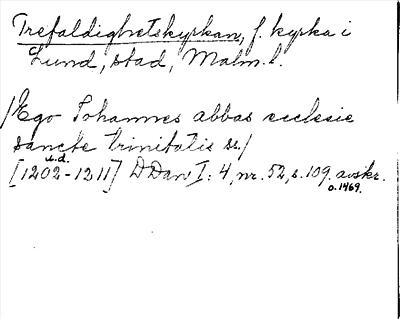 Trefaldighetskyrkan, f. kyrka i
Lund, stad, Malm. l.
/Ego Johannes abbas ecclesie
sancte trinitatis ss/
u.d.
[1202-1211] DDan I: 4, nr. 52, s. 109. avskr.
o. 1469.